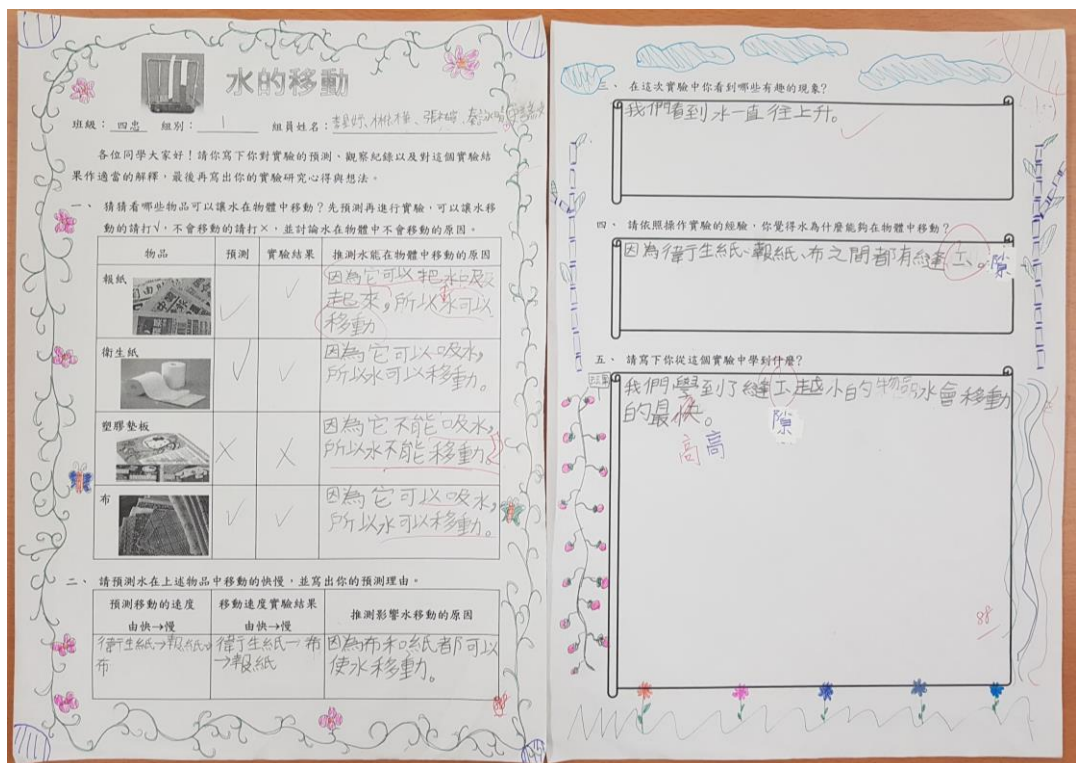 水的移動
班級：四忠 組別：1 組員姓名：
各位同學大家好！請你寫下你對實驗的預測、觀察紀錄以及對這個實驗結
果作適當的解釋，最後再寫出你的實驗研究心得與想法。
一、 猜猜看哪些物品可以讓水在物體中移動？先預測再進行實驗，可以讓水移
動的請打√，不會移動的請打×，並討論水在物體中不會移動的原因。
物品 預測 實驗結果 推測水能在物體中移動的原因
報紙 ✓ ✓
因為它可以把水吸
起來，所以水可以
移動
衛生紙 ✓ ✓
因為它可以吸水，
所以水可以移動。
塑膠墊板 × ×
因為它不能吸水，
所以水不能移動。
布 ✓ ✓
因為它可以吸水，
所以水可以移動。
二、 請預測水在上述物品中移動的快慢，並寫出你的預測理由。
預測移動的速度
由快→慢
移動速度實驗結果
由快→慢
推測影響水移動的原因
衛生紙→報紙→
布
衛生紙→布
→報紙
因為布和紙都可以
使水移動。
三、 在這次實驗中你看到哪些有趣的現象？
我們看到水一直往上升。
四、 請依照操作實驗的經驗，你覺得水為什麼能夠在物體中移動？
因為衛生紙、報紙、布之間都有縫工。隙
五、 請寫下你從這個實驗中學到什麼？
我們學到了縫工越小的物品水會移動
的最快。
隙
高高
88